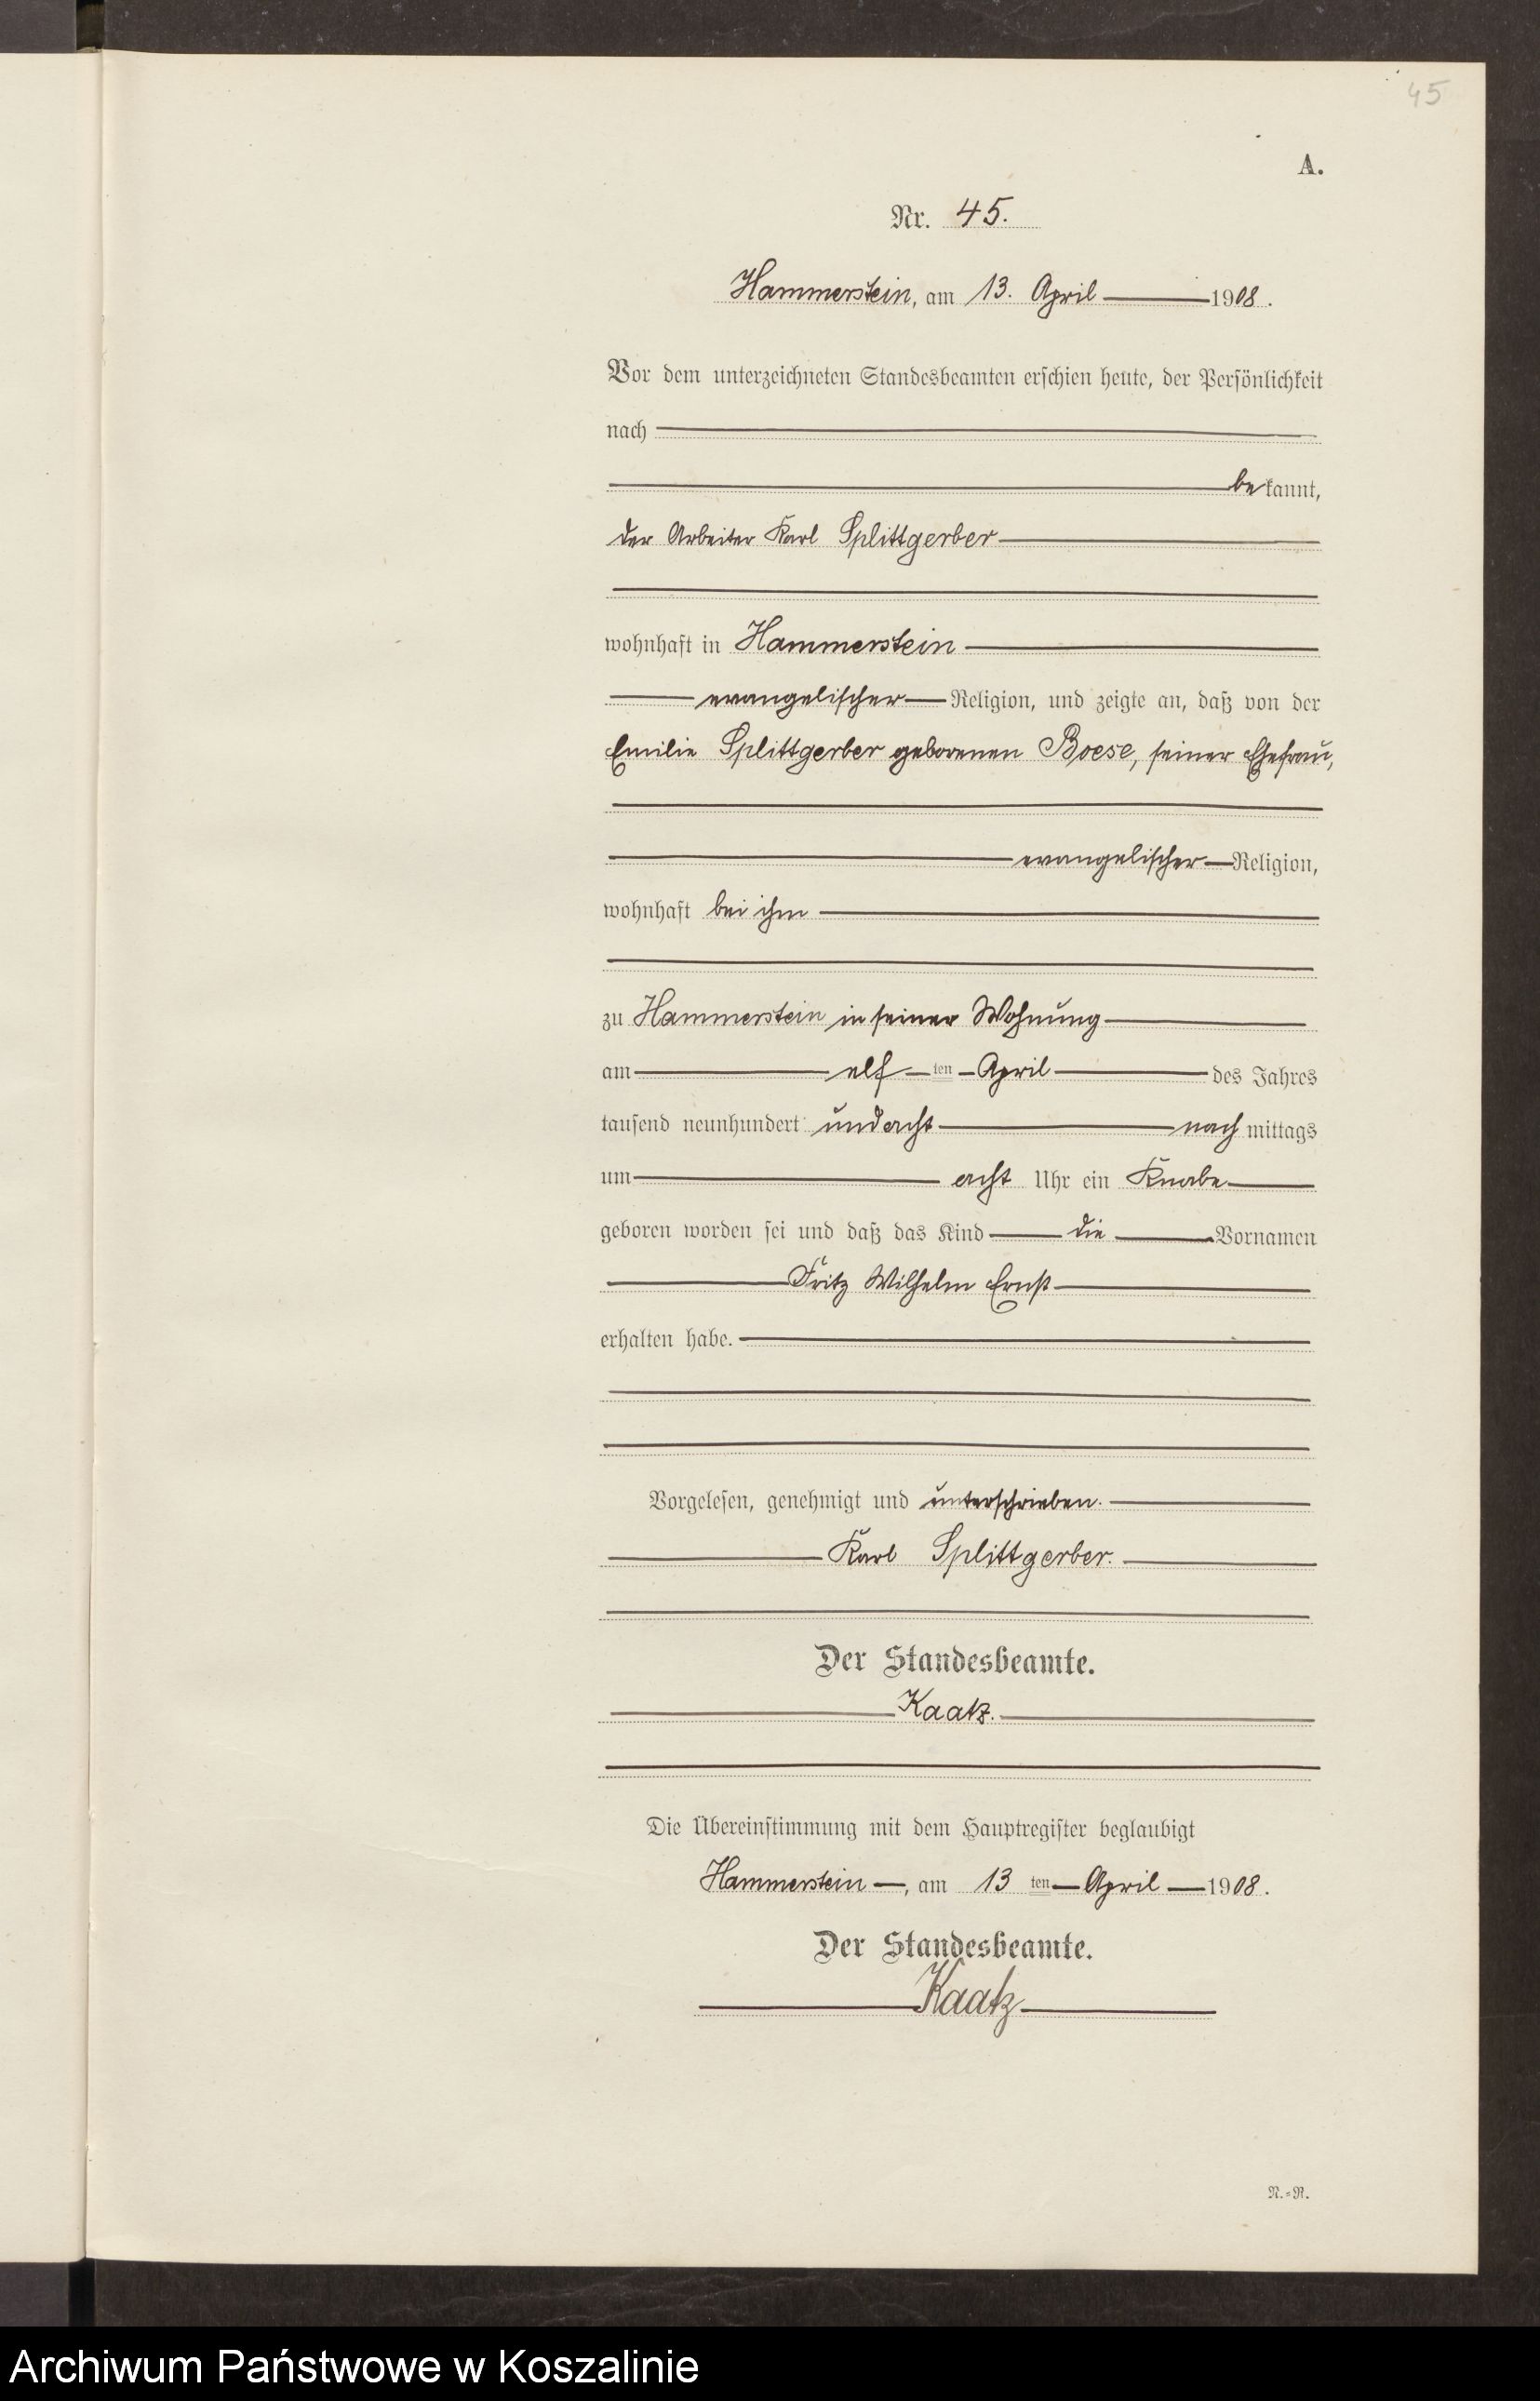 45
A.
Nr. 45.
Hammerstein, am 13. April 1908.
Vor dem unterzeichneten Standesbeamten erschien heute, der Persönlichkeit
nach
bekannt,
der Arbeiter Karl Splittgerber
wohnhaft in Hammerstein
evangelischer Religion, und zeigte an, daß von der
Emilie Splittgerber geborenen Boese, seiner Ehefrau,
evangelischer Religion,
wohnhaft bei ihm
zu Hammerstein in seiner Wohnung
am elf ten April des Jahres
tausend neunhundert und acht nach mittags
um acht Uhr ein Knabe
geboren worden sei und daß das Kind die Vornamen
Fritz Wilhelm Ernst
erhalten habe.
Vorgelesen, genehmigt und unterschrieben.
Karl Splittgerber.
Der Standesbeamte.
Kaatz.
Die Übereinstimmung mit dem Hauptregister beglaubigt
Hammerstein, am 13 ten April 1908.
Der Standesbeamte.
Kaatz
N.=R.
Archiwum Państwowe w Koszalinie